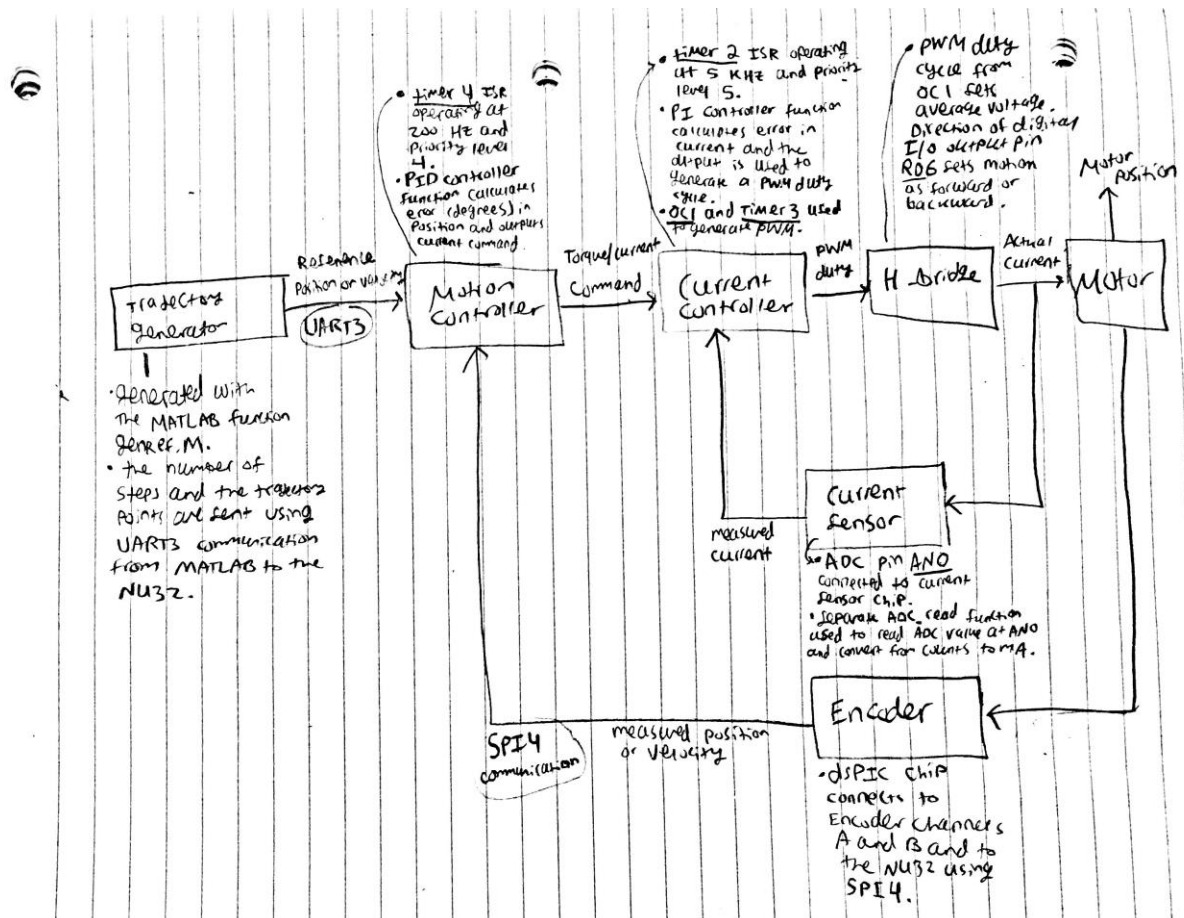 • timer 4 ISR
operating at
200 Hz and
Priority level
4.
• PID controller
function calculates
error (degrees) in
Position and outputs
current command.
• timer 2 ISR operating
at 5 KHz and priority
level 5.
• PI controller function
calculates error in
current and the
output is used to
generate a PWM duty
cycle.
• OC1 and Timer 3 used
to generate PWM.
• PWM duty
cycle from
OC1 sets
average voltage.
Direction of digital
I/O output pin
RD6 sets motion
as forward or
backward.
Motor
Position
Trajectory
generator
Reference
Position or velocity
UART3
Motion
Controller
Torque/current
Command
Current
Controller
PWM
duty
H_Bridge
Actual
Current
Motor
• generated with
the MATLAB function
genRef.M.
• the number of
steps and the trajectory
points are sent using
UART3 communication
from MATLAB to the
NU32.
Current
sensor
measured
current
• ADC pin AN0
connected to current
sensor chip.
• separate ADC_read function
used to read ADC value at AN0
and convert from counts to mA.
Encoder
measured position
or velocity
SPI4
communication
• dsPIC chip
connects to
Encoder channels
A and B and to
the NU32 using
SPI4.